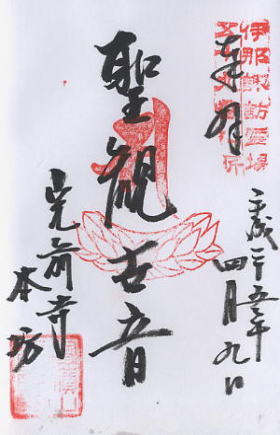 伊那諏訪霊場
奉拝
平成二十五年
四月九日
聖観世音
光前寺
本坊